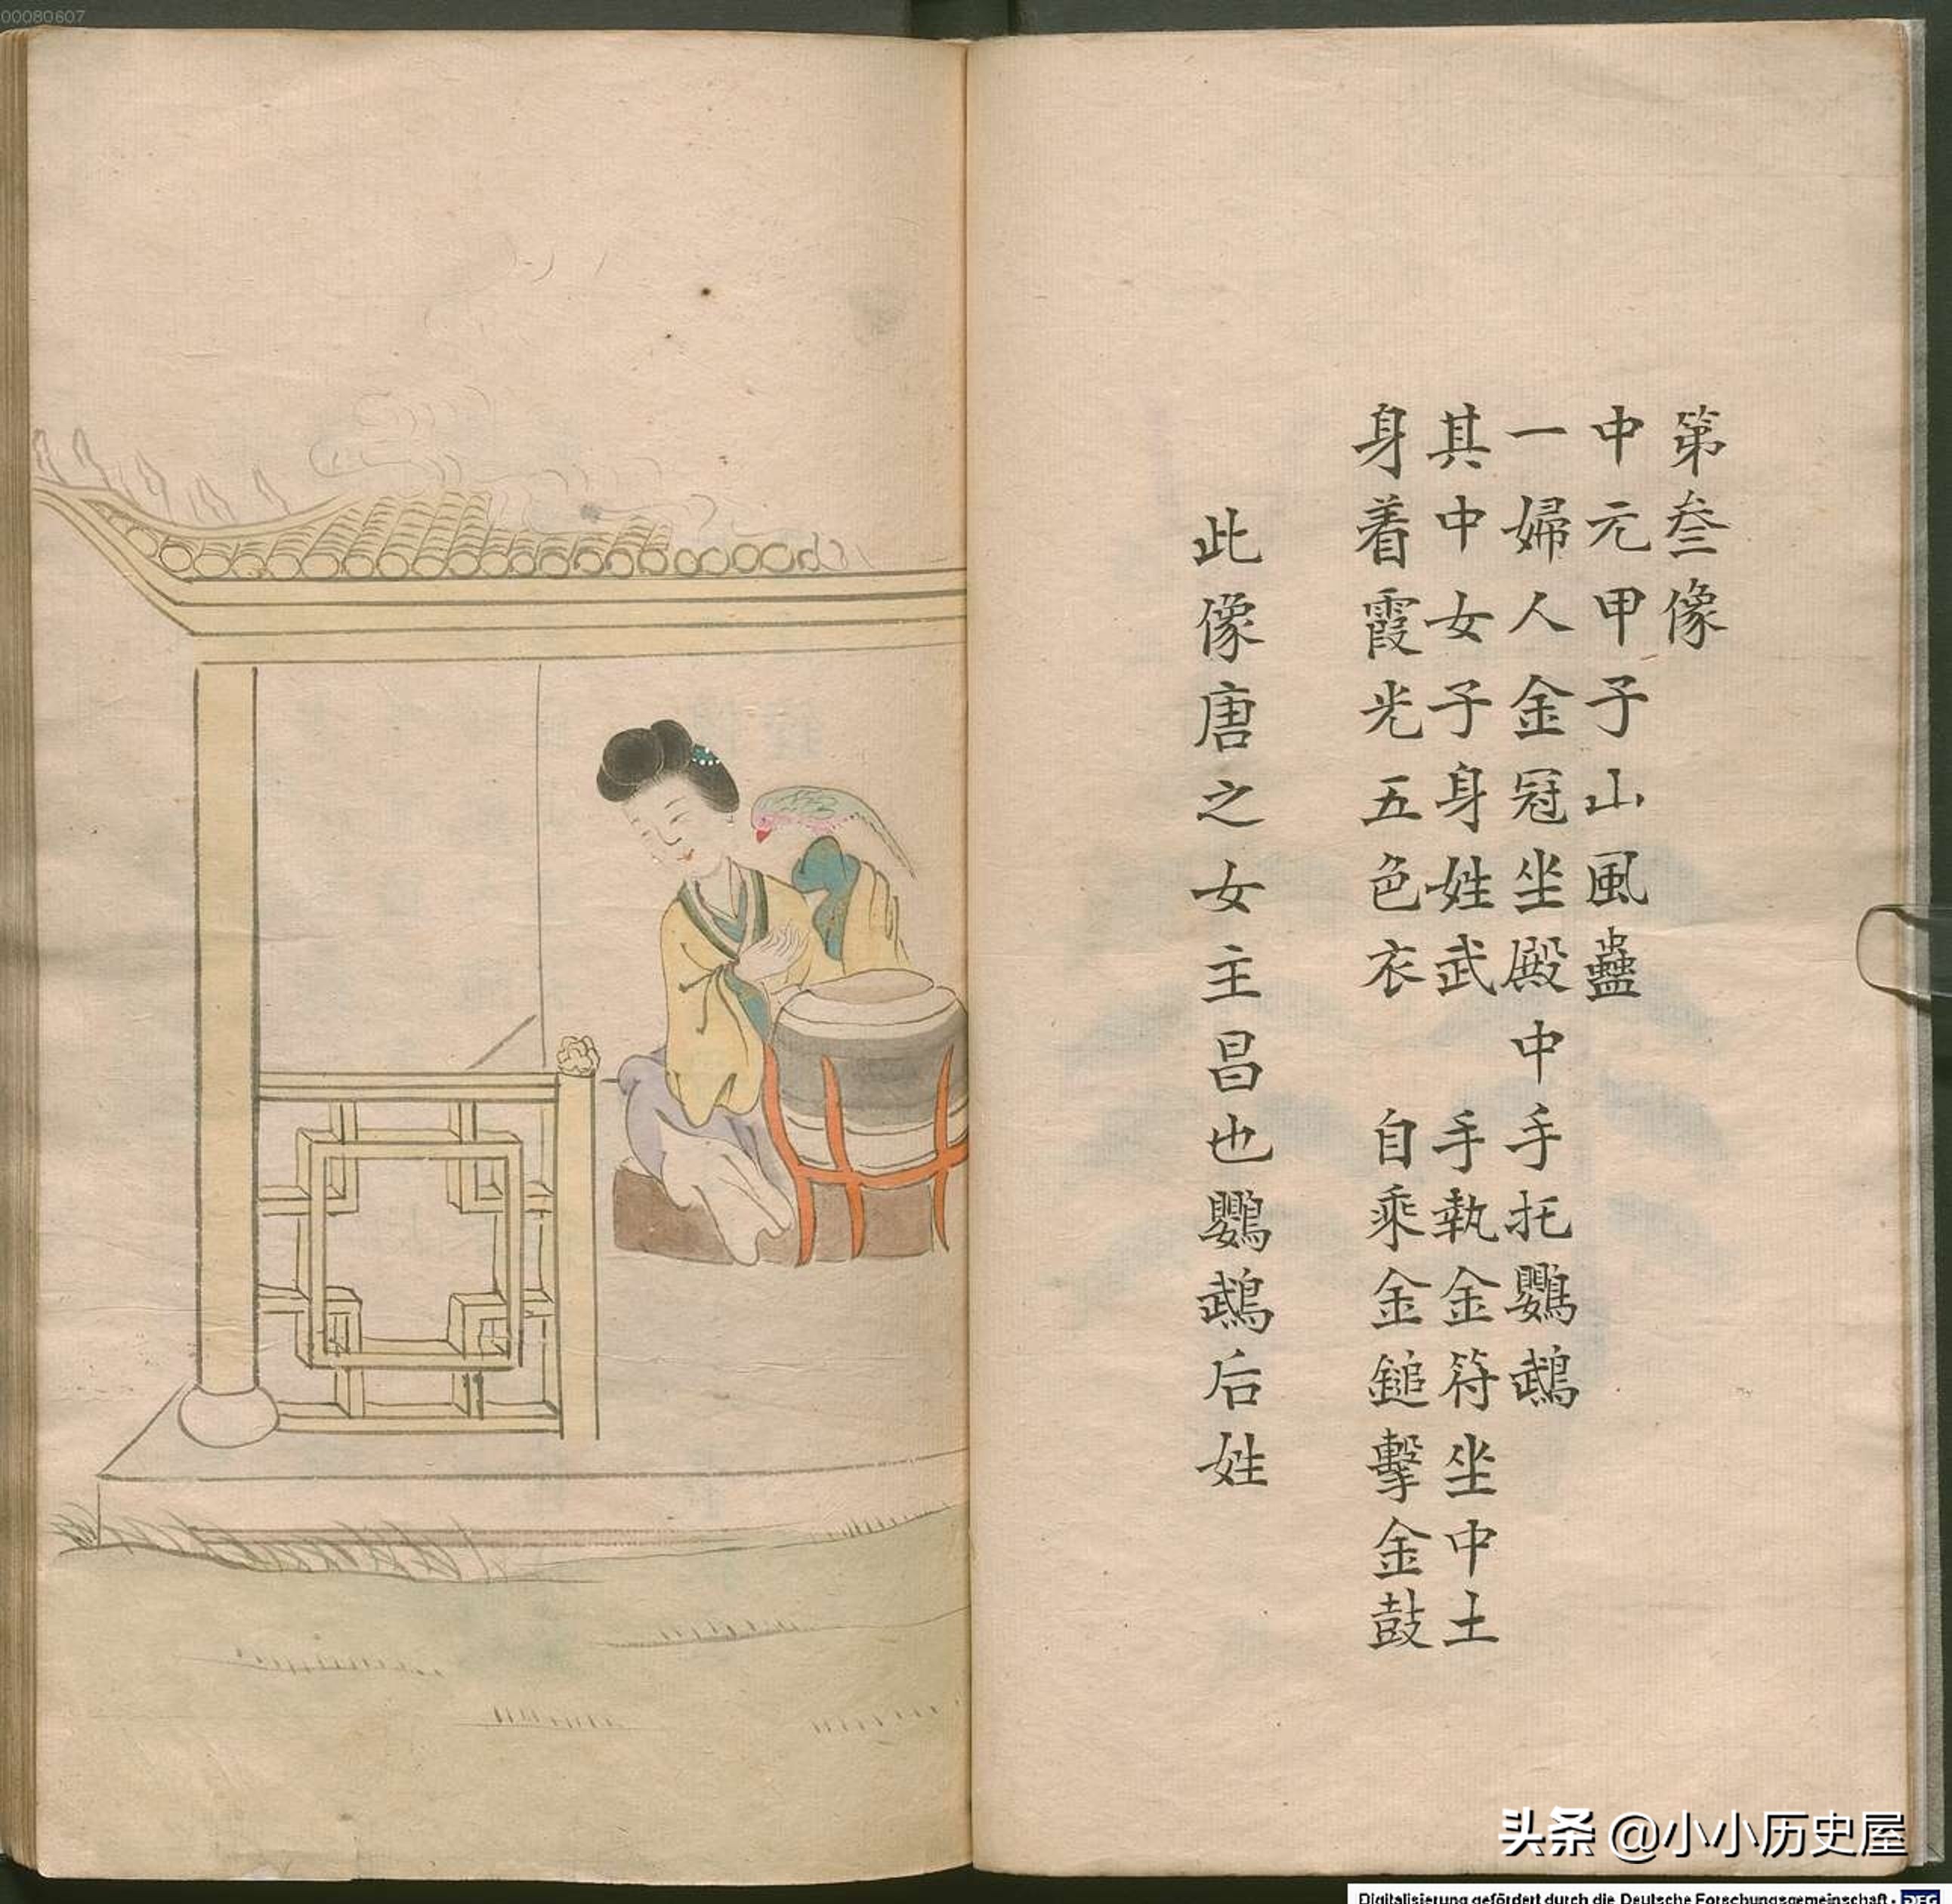 00080607
第叁像
中元甲子山風蠱
一婦人金冠坐殿中手托鸚鵡
其中女子身姓武 手執金符坐中土
身着霞光五色衣 自乘金鎚擊金鼓
此像唐之女主昌也鸚鵡后姓
头条 @小小历史屋
Digitalisierung gefördert durch die Deutsche Forschungsgemeinschaft - DFG